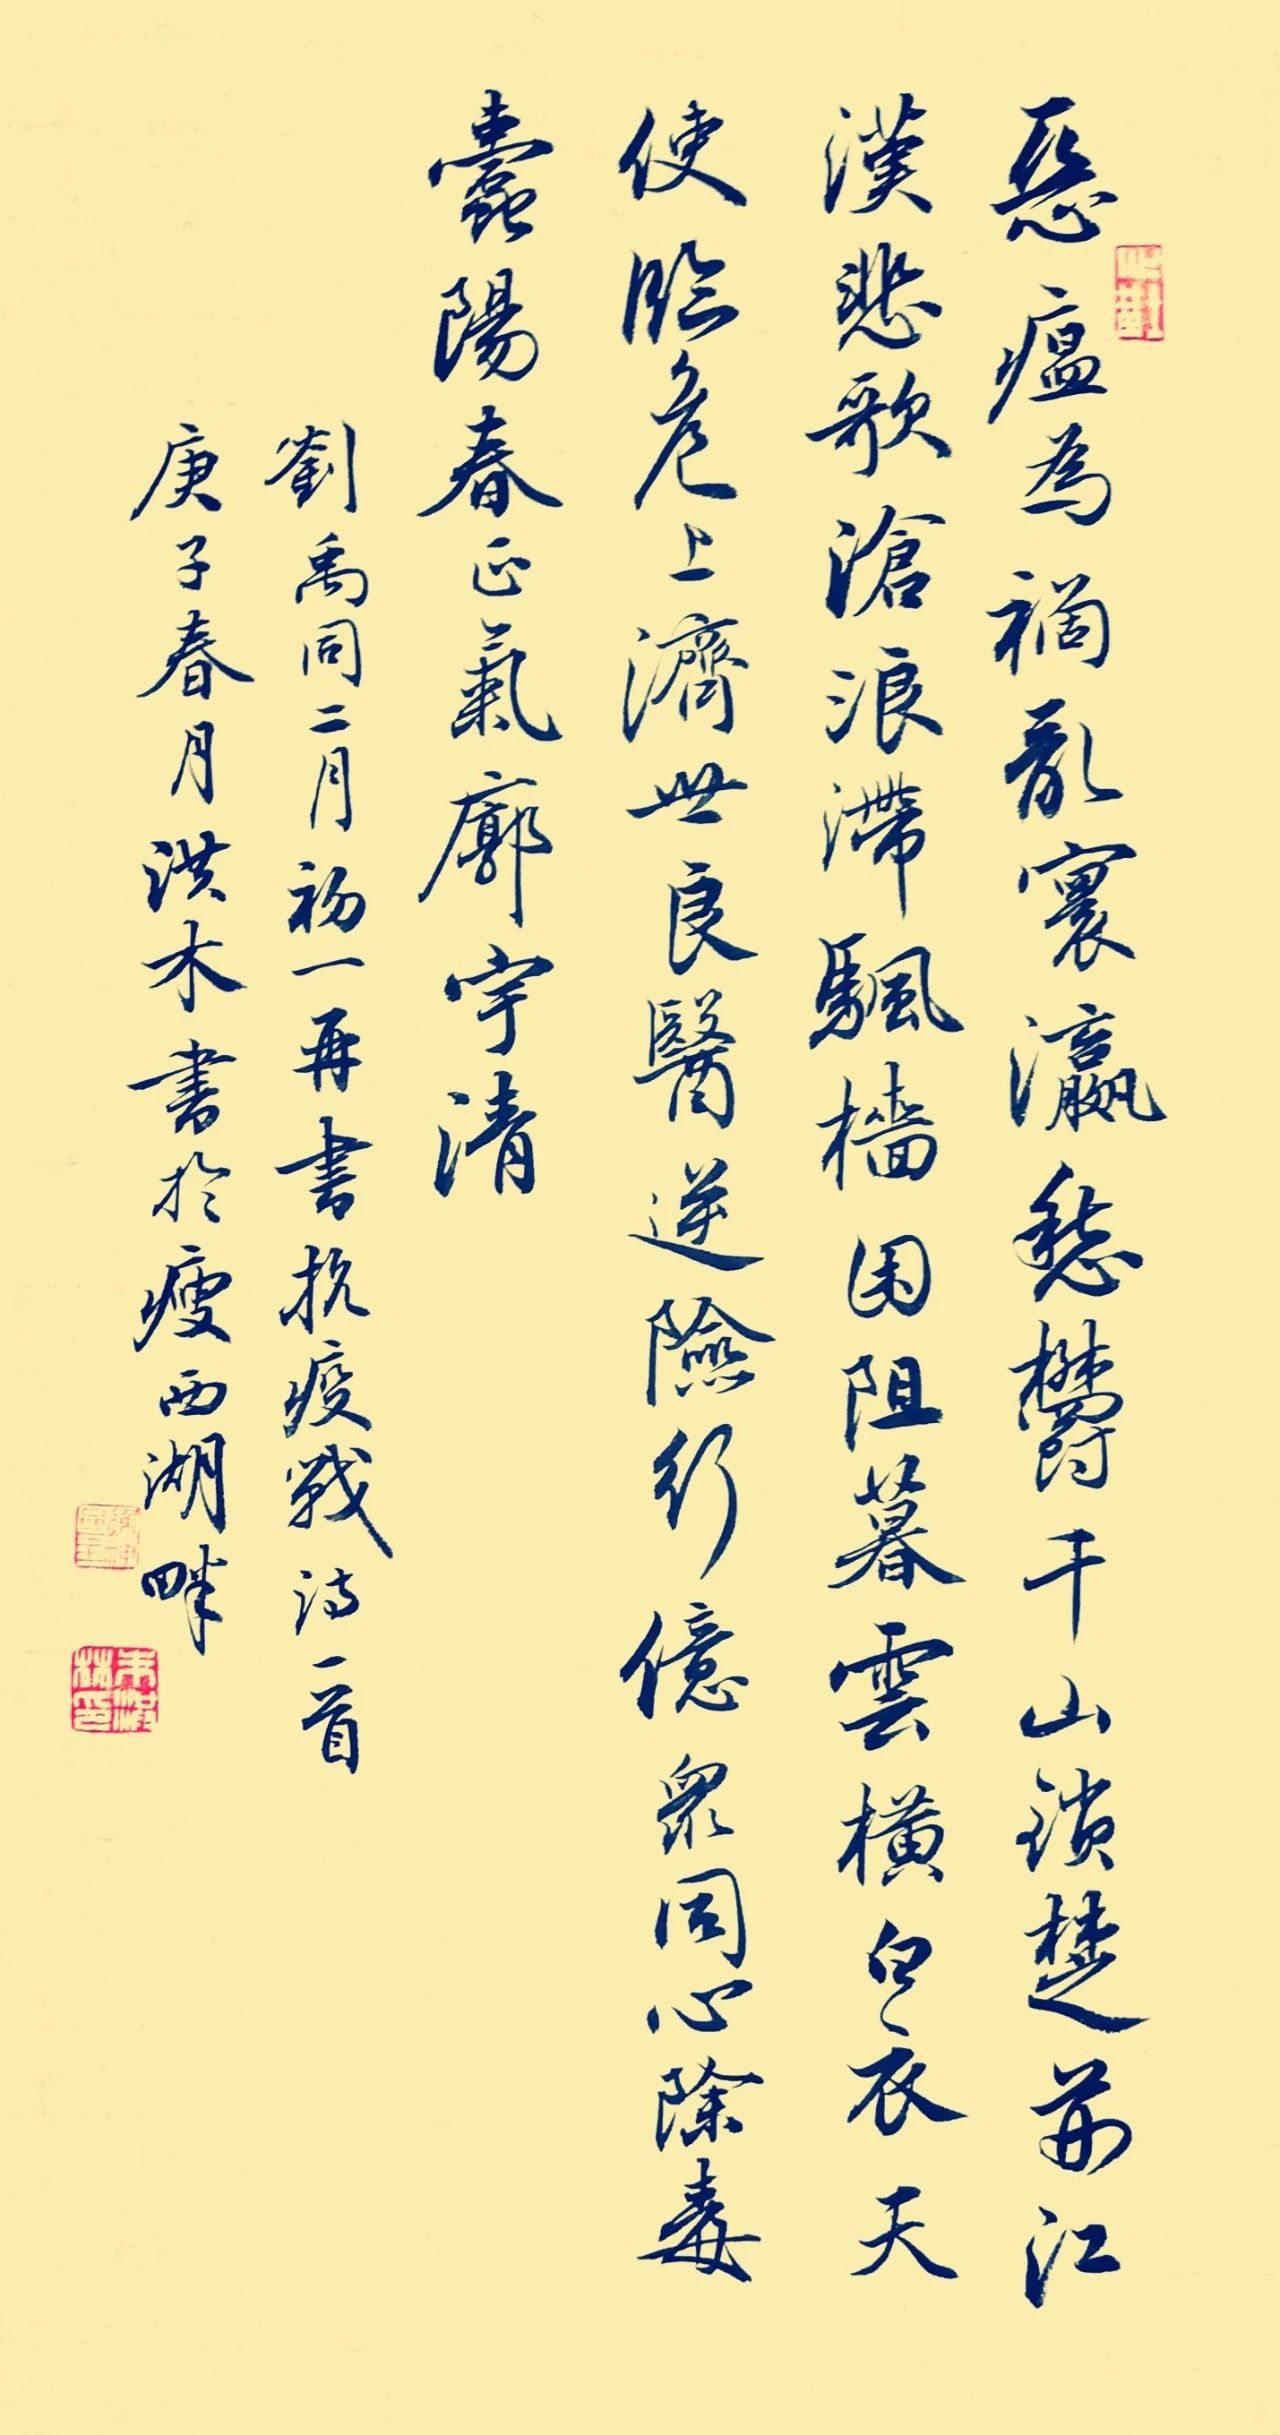 惡瘟為禍亂寰瀛愁欝千山鎖楚荊江
漢悲歌滄浪滯颿檣困阻暮雲橫白衣天
使臨危上濟世良醫逆險行億眾同心除毒
蠹陽春正氣廓宇清
劉禹同二月初一再書抗疫戰詩一首
庚子春月洪木書於瘦西湖畔